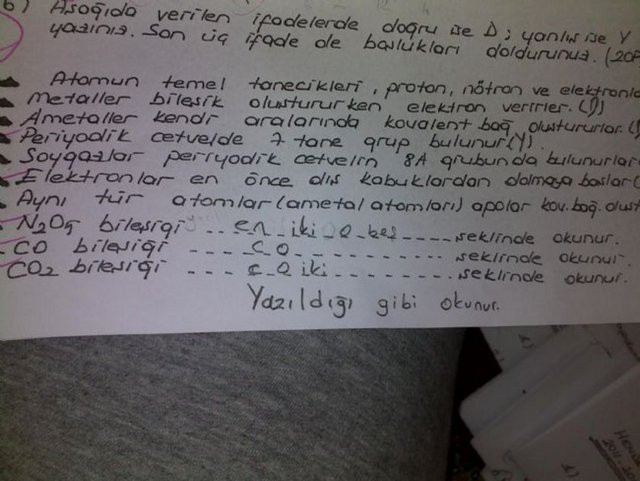 b) Aşağıda verilen ifadelerde doğru ise D; yanlış ise Y
yazınız. Son üç ifade de boşlukları doldurunuz. (20P
Atomun temel tanecikleri, proton, nötron ve elektronla
Metaller bileşik oluştururken elektron verirler. (D)
Ametaller kendi aralarında kovalent bağ oluştururlar. (
Periyodik cetvelde 7 tane grup bulunur (Y).
Soygazlar periyodik cetvelin 8A grubunda bulunurlar
Elektronlar en önce dış kabuklardan dolmaya başlar (
Aynı tür atomlar (ametal atomları) apolar kov. bağ. oluşt
N2O5 bileşiği .. en iki o beş ..... şeklinde okunur.
CO bileşiği .... CO ........ şeklinde okunur.
CO2 bileşiği .... c o iki ........ şeklinde okunur.
Yazıldığı gibi okunur.